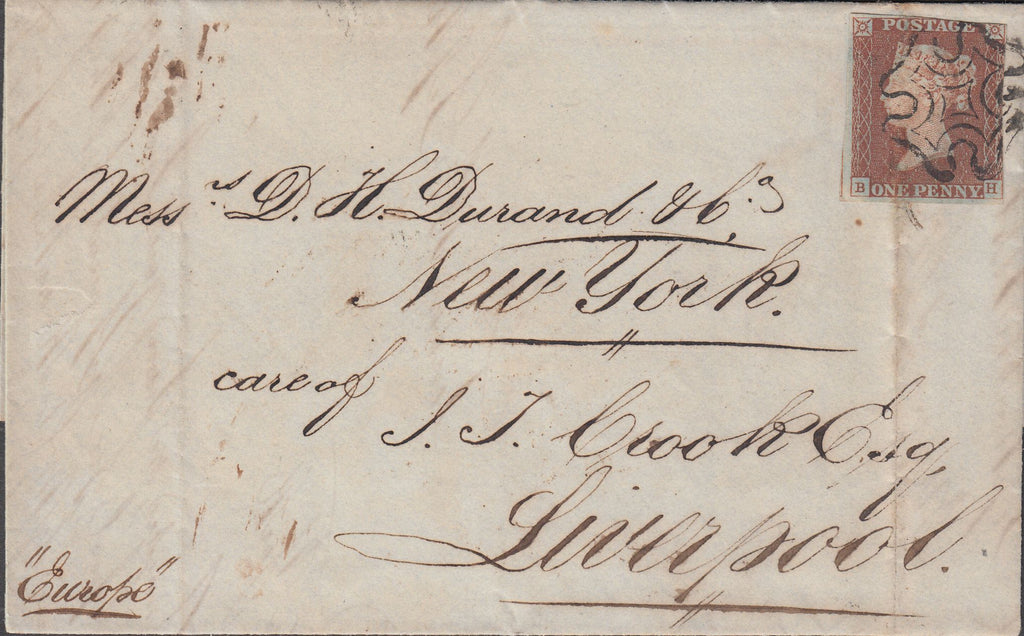 POSTAGE
B ONE PENNY. H
Messrs D. H. Durand & Co.
New York.
care of
J. J. Crook Esq
Liverpool.
"Europe"